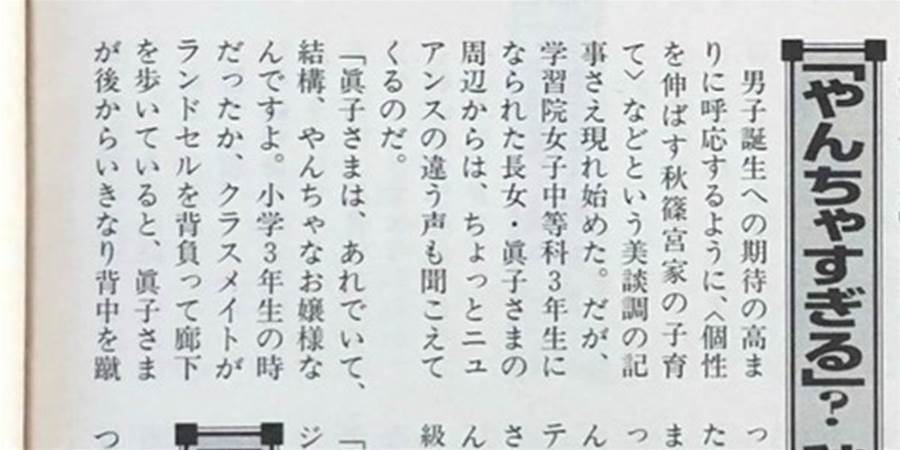 「やんちゃすぎる」?
男子誕生への期待の高ま
りに呼応するように、〈個性
を伸ばす秋篠宮家の子育
て〉などという美談調の記
事さえ現れ始めた。だが、
学習院女子中等科3年生に
なられた長女・眞子さまの
周辺からは、ちょっとニュ
アンスの違う声も聞こえて
くるのだ。
「眞子さまは、あれでいて、
結構、やんちゃなお嬢様な
んですよ。小学3年生の時
だったか、クラスメイトが
ランドセルを背負って廊下
を歩いていると、眞子さま
が後からいきなり背中を蹴
っ
た
ま
っ
ん
テ
さ
ん
級
「
ジ
つ